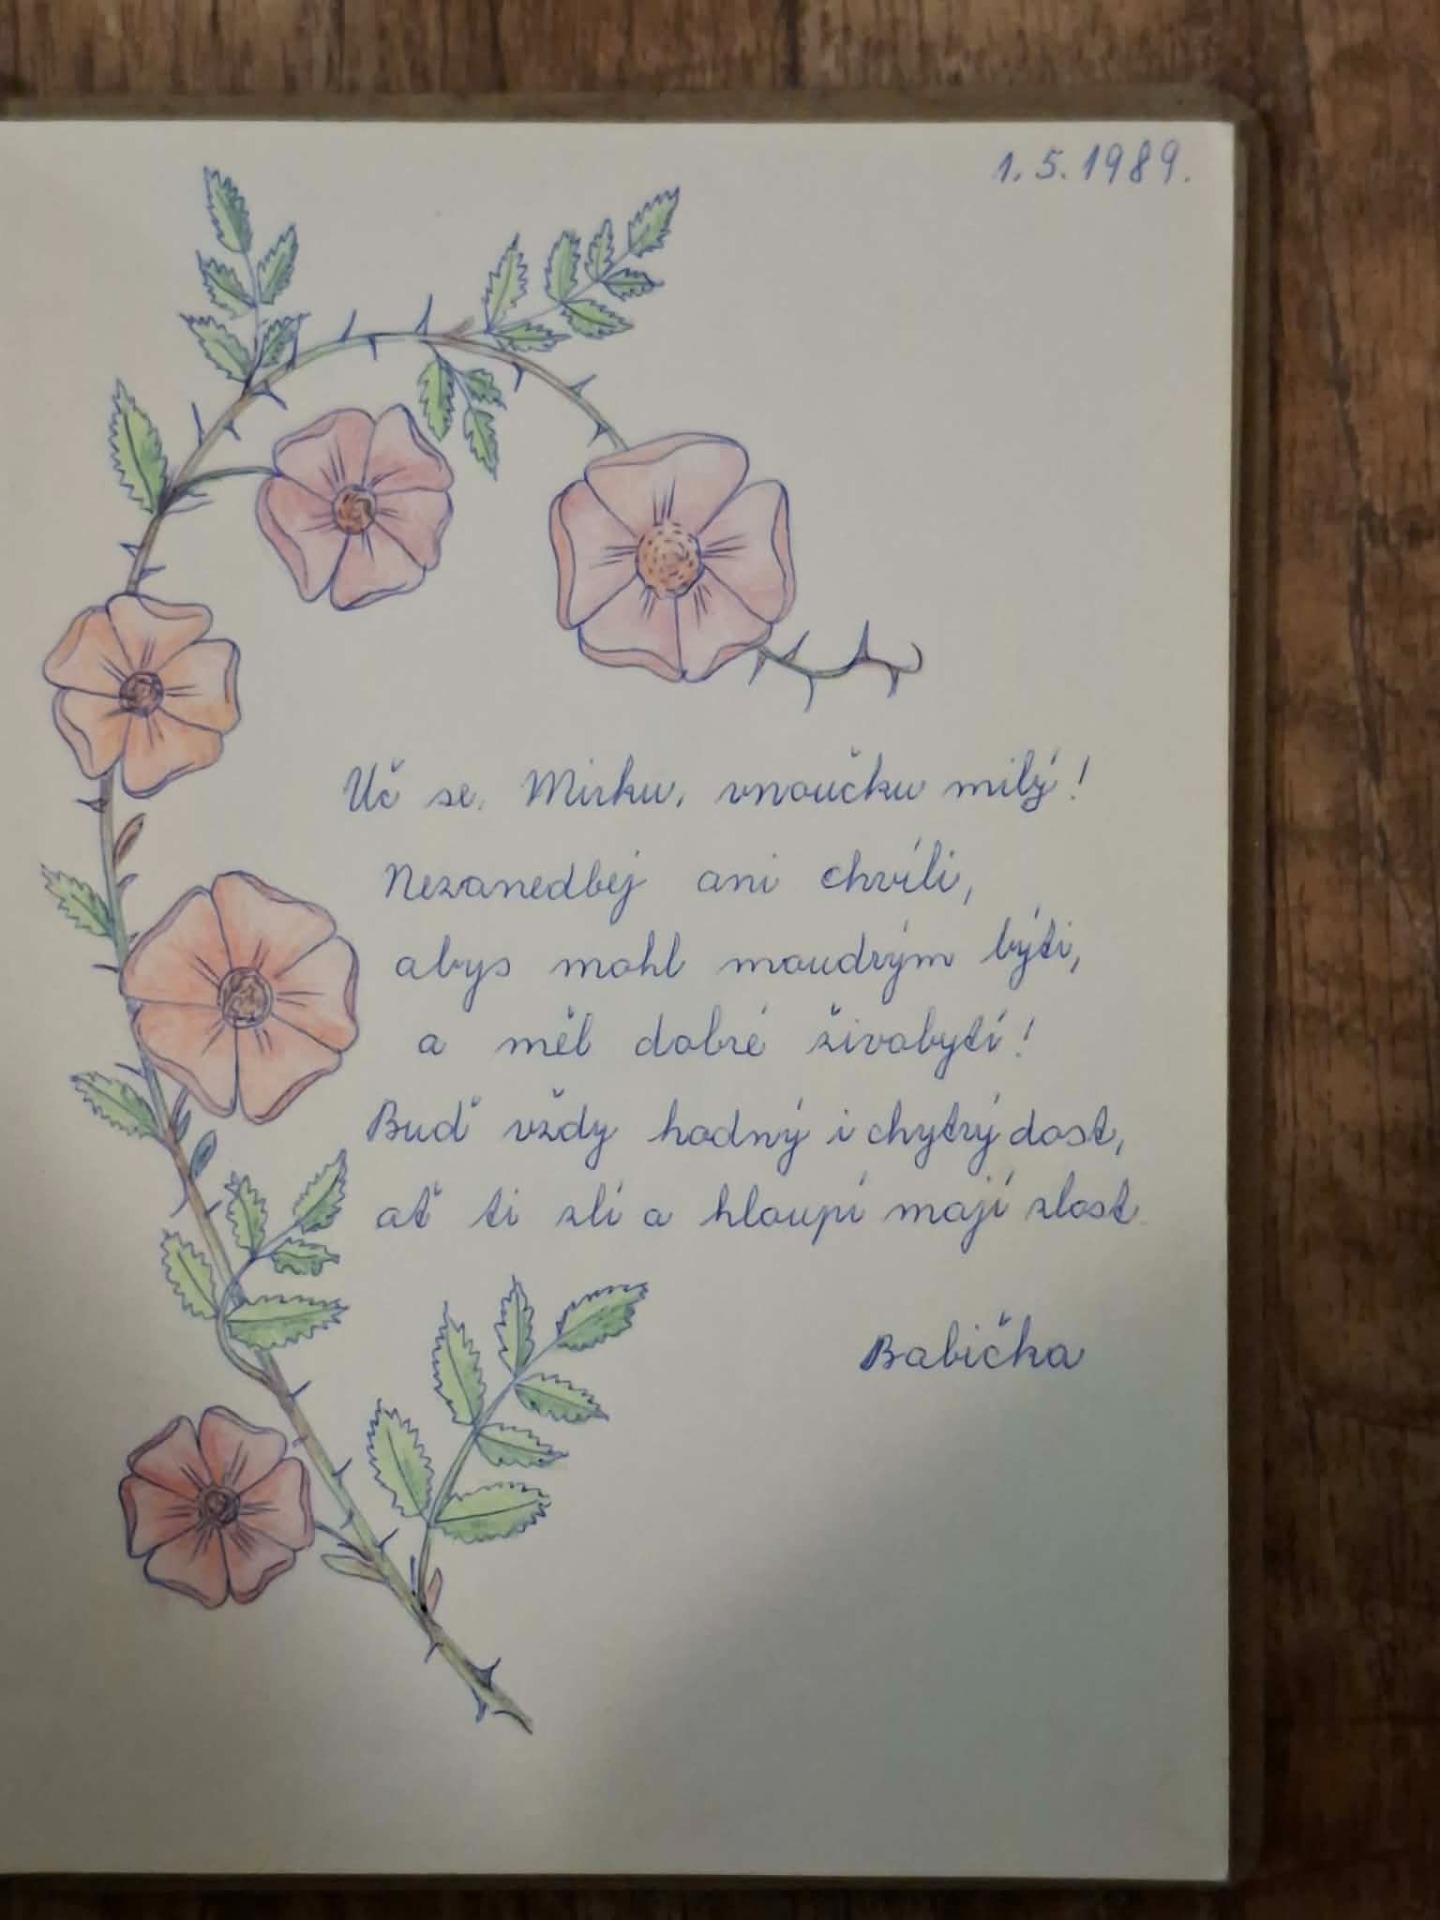 1. 5. 1989.
Uč se, Mirku, vnoučku milý!
Nezanedbej ani chvíli,
abys mohl moudrým býti,
a měl dobré živobytí!
Buď vždy hodný i chytrý dost,
ať ti zlí a hloupí mají zlost.
Babička